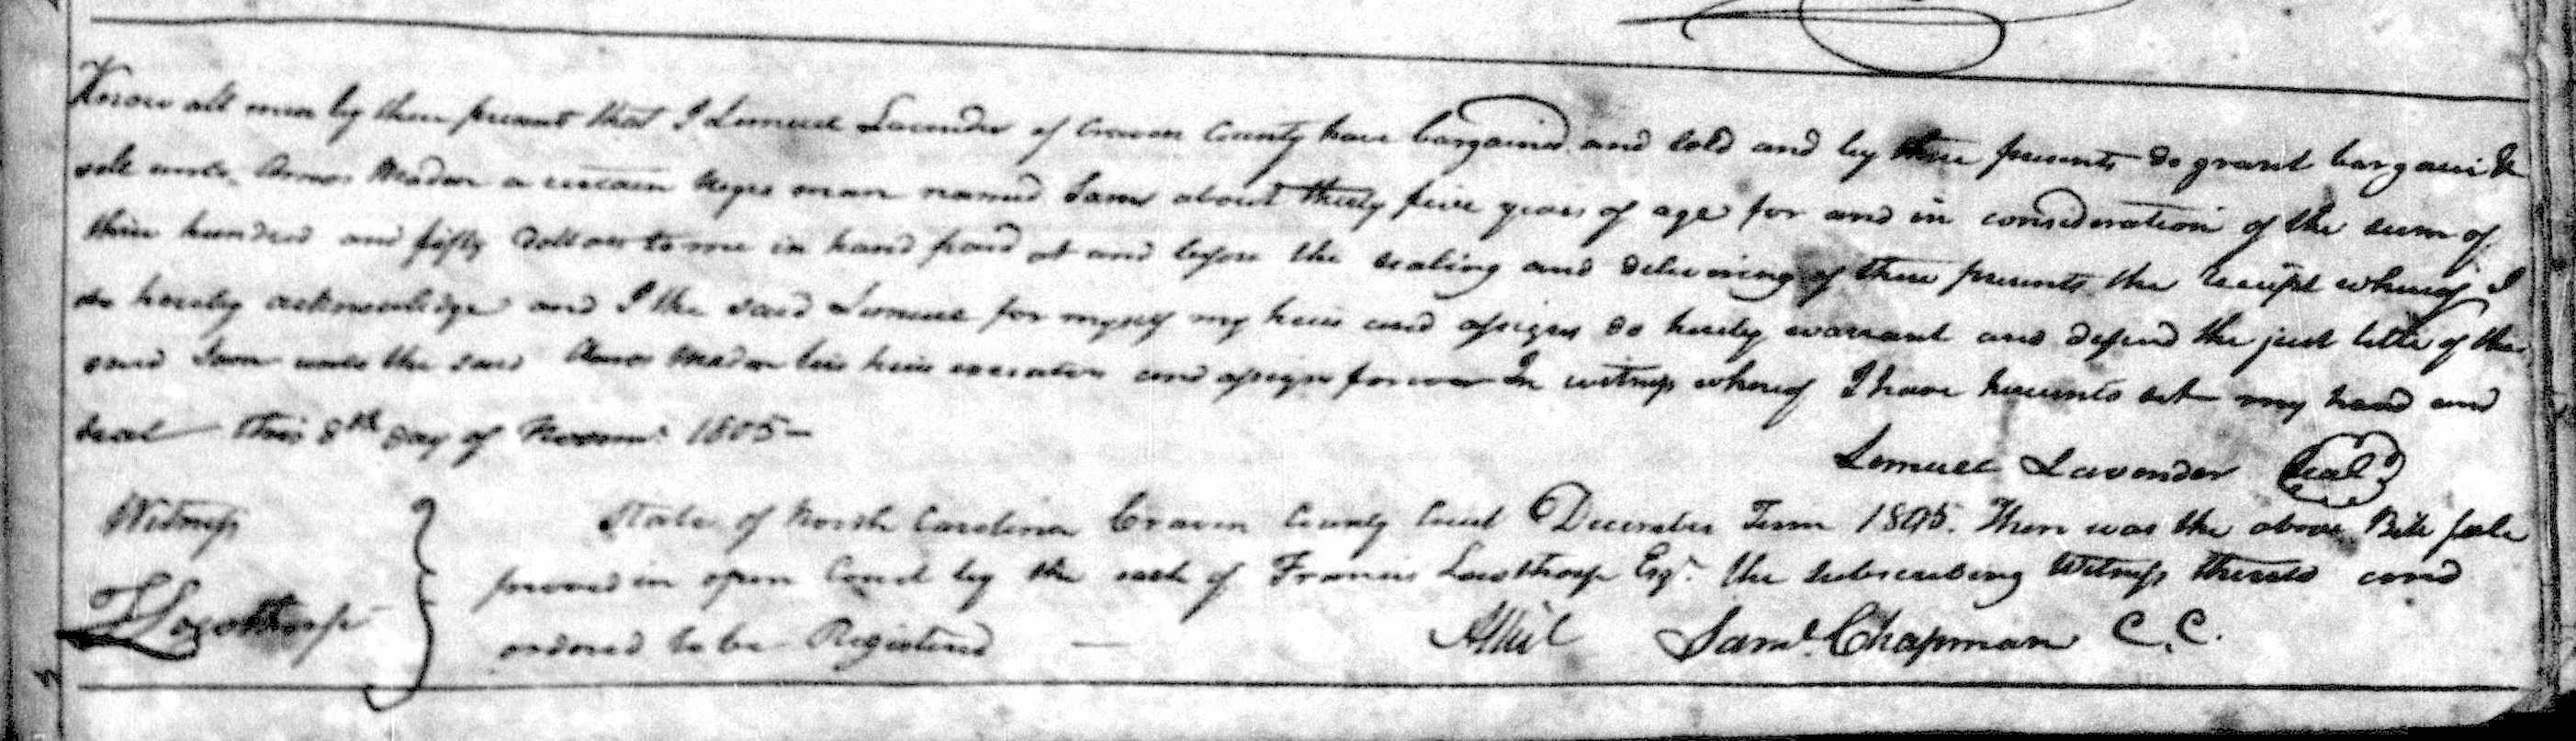 Know all men by these presents that I Lemuel Lavender of Craven County have bargained and sold and by these presents do grant bargain &
sell unto Amos Madon a certain Negro man named Sam about thirty five years of age for and in consideration of the sum of
three hundred and fifty dollars to me in hand paid at and before the sealing and delivering of these presents the receipt whereof I
do hereby acknowledge and I the said Lemuel for myself my heirs and assigns do hereby warrant and defend the just title of the
said Sam unto the said Amos Madon his heirs executors and assigns forever In witness whereof I have hereunto set my hand and
seal this 8th day of Novemr. 1805 —
Lemuel Lavender Seal
Witness
F Lowthrop
State of North Carolina Craven County Court December Term 1805. Then was the above Bill sale
proved in open Court by the oath of Francis Lowthrop Esqr. the subscribing Witness thereto and
ordered to be Registered —
Attest Saml. Chapman C.C.